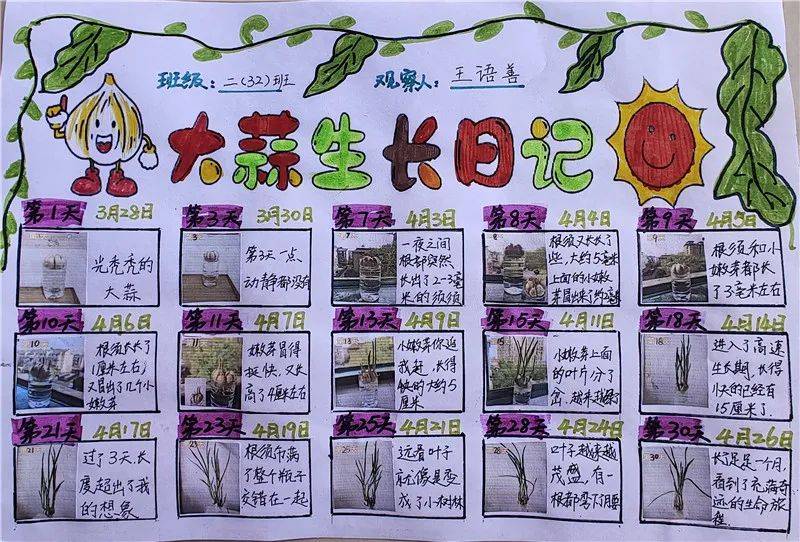 班级：二(32)班
观察人：王语善
大蒜生长日记
第1天 3月28日
光秃秃的
大蒜
第3天 3月30日
第3天一点
动静都没有
第7天 4月3日
一夜之间
根都突然
长出了2-3毫
米的须须
第8天 4月4日
根须又长长了
些,大约5毫米
上面的小嫩
芽冒出来了约毫
第9天 4月5日
根须和小
嫩芽都长
了3毫米左右
第10天 4月6日
根须长长了
1厘米左右
又冒出了几个小
嫩芽
第11天 4月7日
嫩芽冒得
挺快,又长
高了4厘米左右
第13天 4月9日
小嫩芽你追
我赶,长得
快的大约5
厘米
第15天 4月11日
小嫩芽上面
的叶片分了
岔,越来越
第18天 4月14日
进入了高速
生长期,长得
快的已经有
15厘米了.
第21天 4月17日
过了3天,长
度超出了我
的想象
第23天 4月19日
根须布满
了整个瓶子
交错在一起
第25天 4月21日
远看叶子
就像是变
成了小树林
第28天 4月24日
叶子越来越
茂盛,有一
根都弯下了腰
第30天 4月26日
长足足一个月,
看到了充满奇
迹的生命旅
程